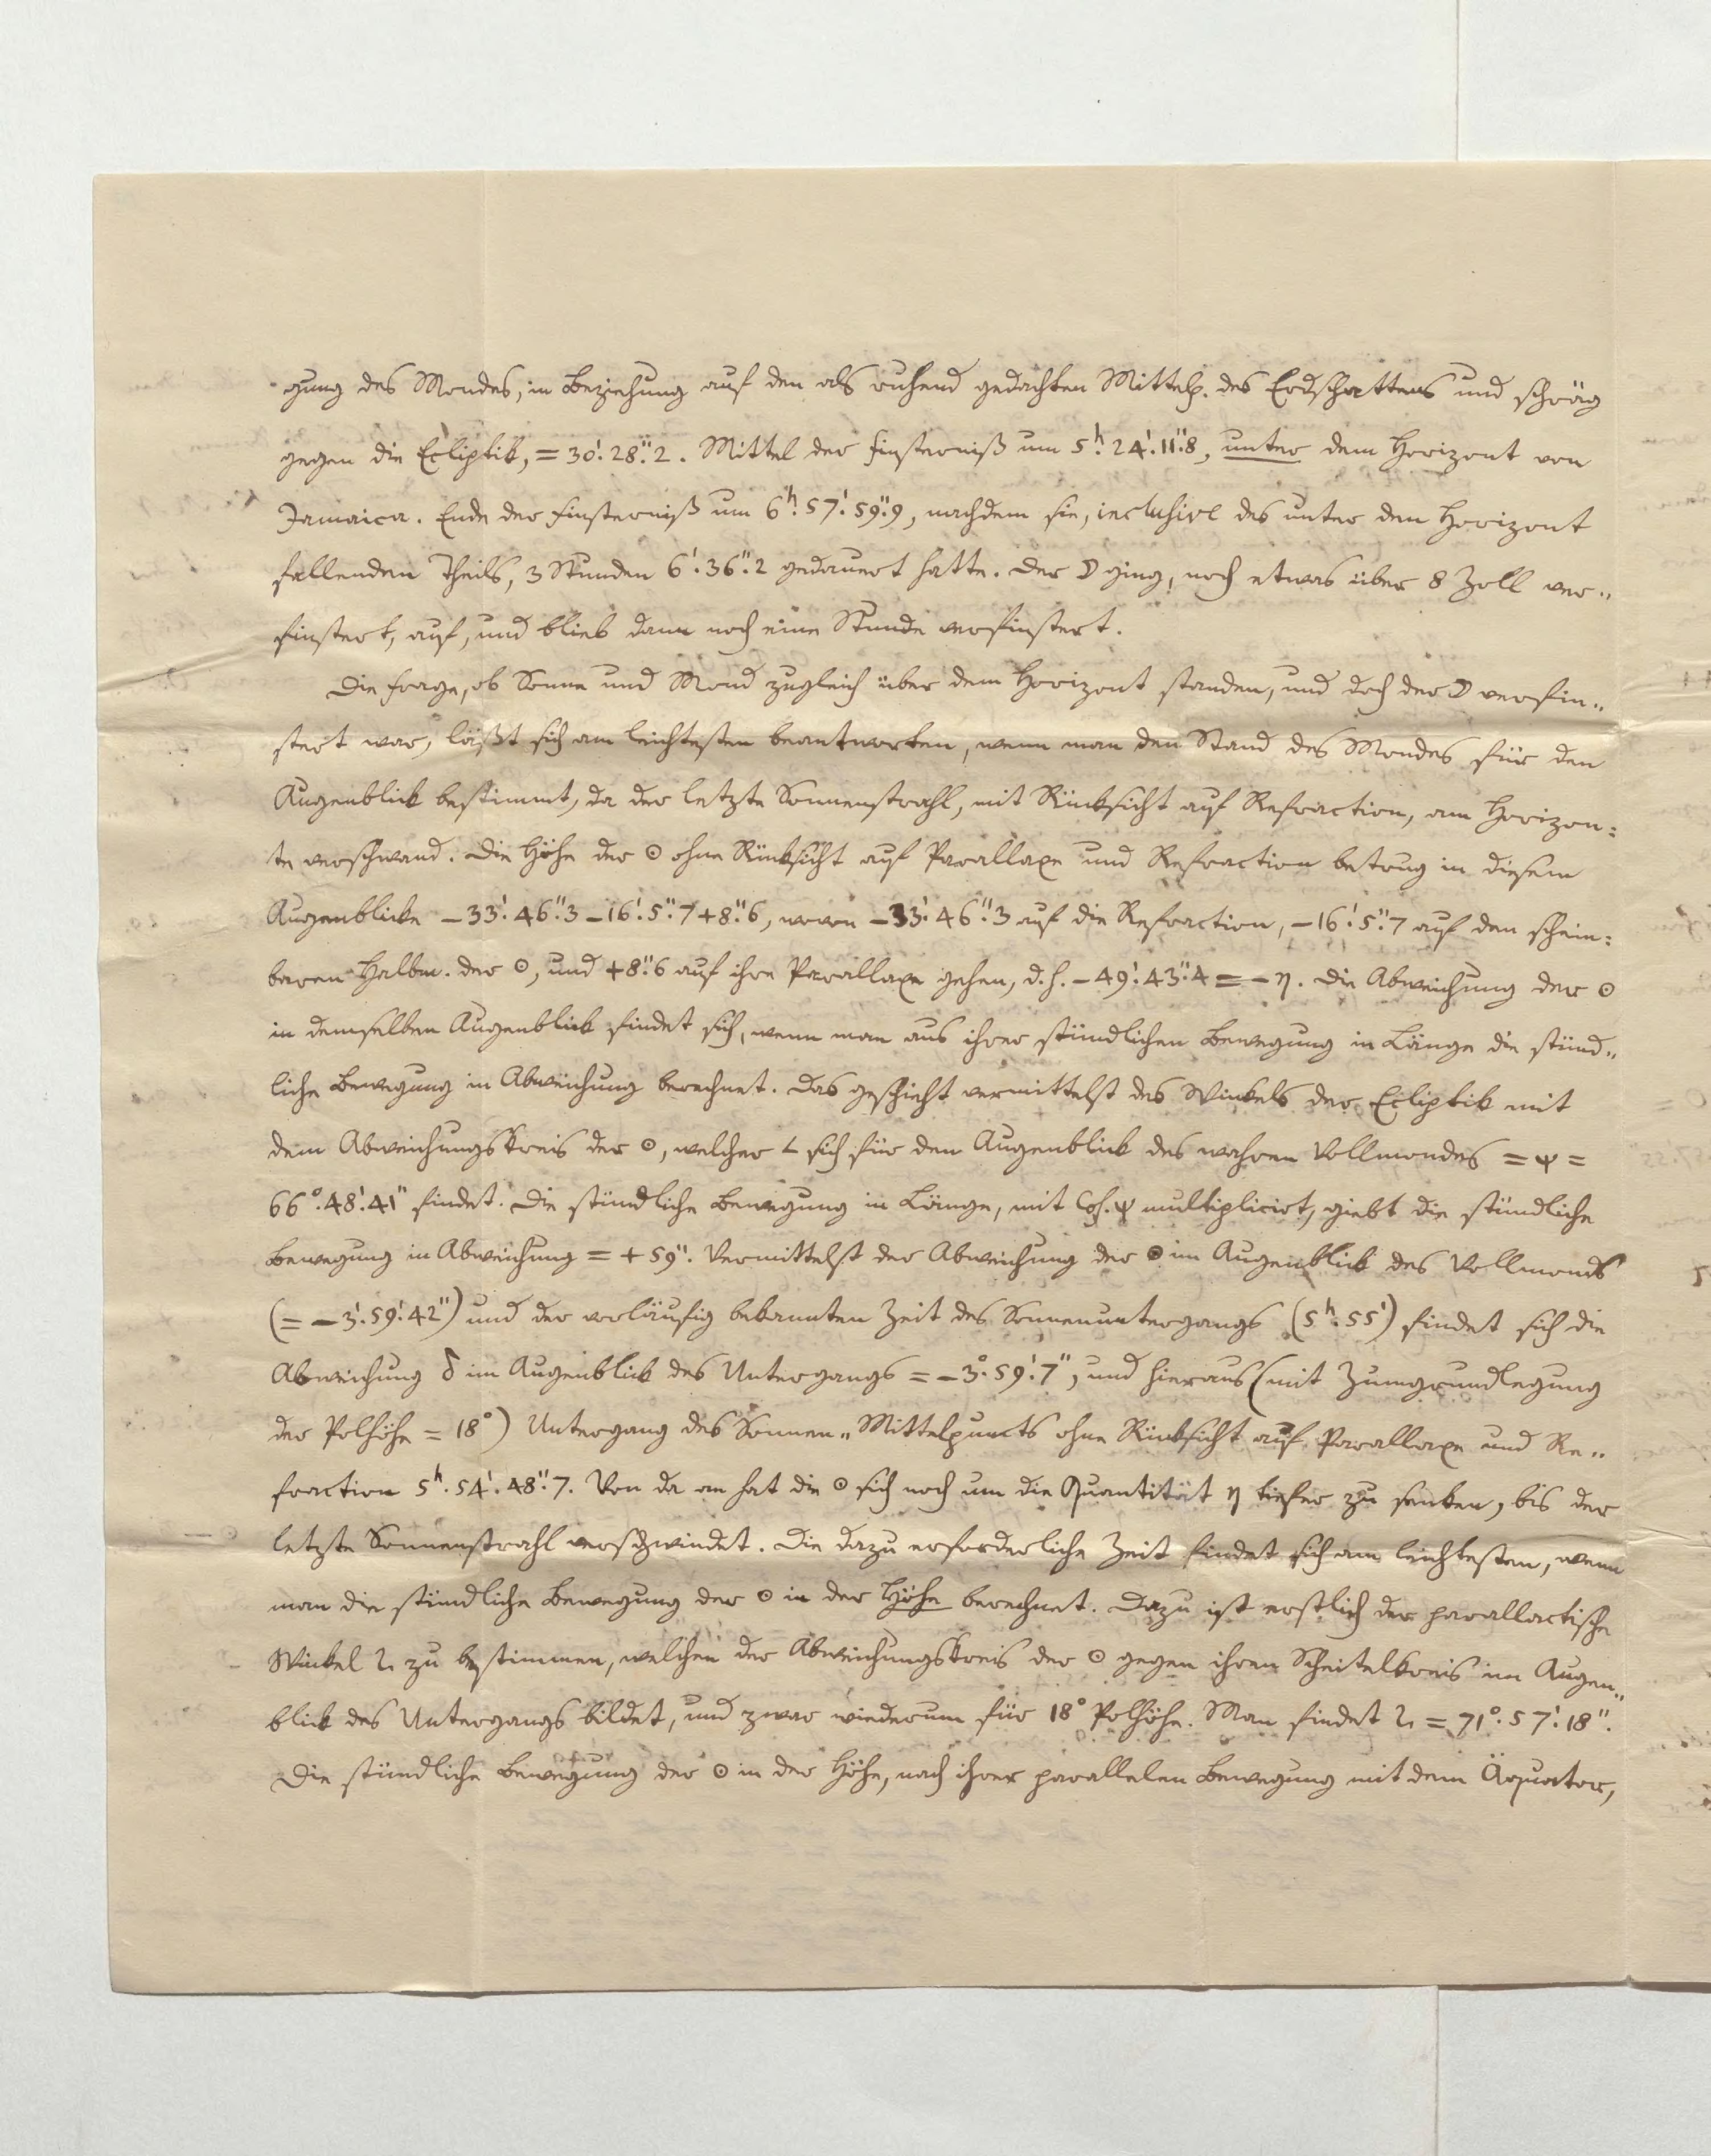 gung des Mondes, in Beziehung auf den als ruhend gedachten Mittelp. des Erdschattens und schräg
gegen die Ecliptik, = 30'. 28".2. Mittel der Finsterniß um 5h. 24'. 11".8, unter dem Horizont von
Jamaica. Ende der Finsterniß um 6h. 57'. 59".9, nachdem sie, inclusive des unter den Horizont
fallenden Theils, 3 Stunden 6'. 36".2 gedauert hatte. Der ☽ ging, noch etwas über 8 Zoll ver„
finstert, auf, und blieb dann noch eine Stunde verfinstert.
Die Frage, ob Sonne und Mond zugleich über dem Horizont standen, und doch der ☽ verfin„
stert war, läßt sich am leichtesten beantworten, wenn man den Stand des Mondes für den
Augenblick bestimmt, da der letzte Sonnenstrahl, mit Rücksicht auf Refraction, am Horizon:
te verschwand. Die Höhe der ☉ ohne Rücksicht auf Parallaxe und Refraction betrug in diesem
Augenblicke −33'. 46".3 −16'. 5".7 +8".6, wovon −33'. 46".3 auf die Refraction, −16'. 5".7 auf den schein:
baren Halbm. der ☉, und +8".6 auf ihre Parallaxe gehen, d. h. −49'. 43".4 = −η. Die Abweichung der ☉
in demselben Augenblick findet sich, wenn man aus ihrer stündlichen Bewegung in Länge die stünd„
liche Bewegung in Abweichung berechnet. Das geschieht vermittelst des Winkels der Ecliptik mit
dem Abweichungskreis der ☉, welcher ∠ sich für den Augenblick des wahren Vollmondes = ψ =
66°. 48'. 41" findet. Die stündliche Bewegung in Länge, mit Cos. ψ multiplicirt, giebt die stündliche
Bewegung in Abweichung = + 59". Vermittelst der Abweichung der ☉ im Augenblick des Vollmonds
(= − 3'. 59'. 42") und der vorläufig bekannten Zeit des Sonnenuntergangs (5h. 55') findet sich die
Abweichung δ im Augenblick des Untergangs = − 3°. 59'. 7", und hieraus (mit Zumgrundlegung
der Polhöhe = 18°) Untergang des Sonnen„Mittelpuncts ohne Rücksicht auf Parallaxe und Re„
fraction 5h. 54'. 48".7. Von da an hat die ☉ sich noch um die Quantität η tiefer zu senken, bis der
letzte Sonnenstrahl verschwindet. Die dazu erforderliche Zeit findet sich am leichtesten, wenn
man die stündliche Bewegung der ☉ in der Höhe berechnet. Dazu ist erstlich der parallactische
Winkel zu bestimmen, welchen der Abweichungskreis der ☉ gegen ihren Scheitelkreis im Augen„
blick des Untergangs bildet, und zwar wiederum für 18° Polhöhe. Man findet = 71°. 57'. 18".
Die stündliche Bewegung der ☉ in der Höhe, nach ihrer parallelen Bewegung mit dem Äquator,